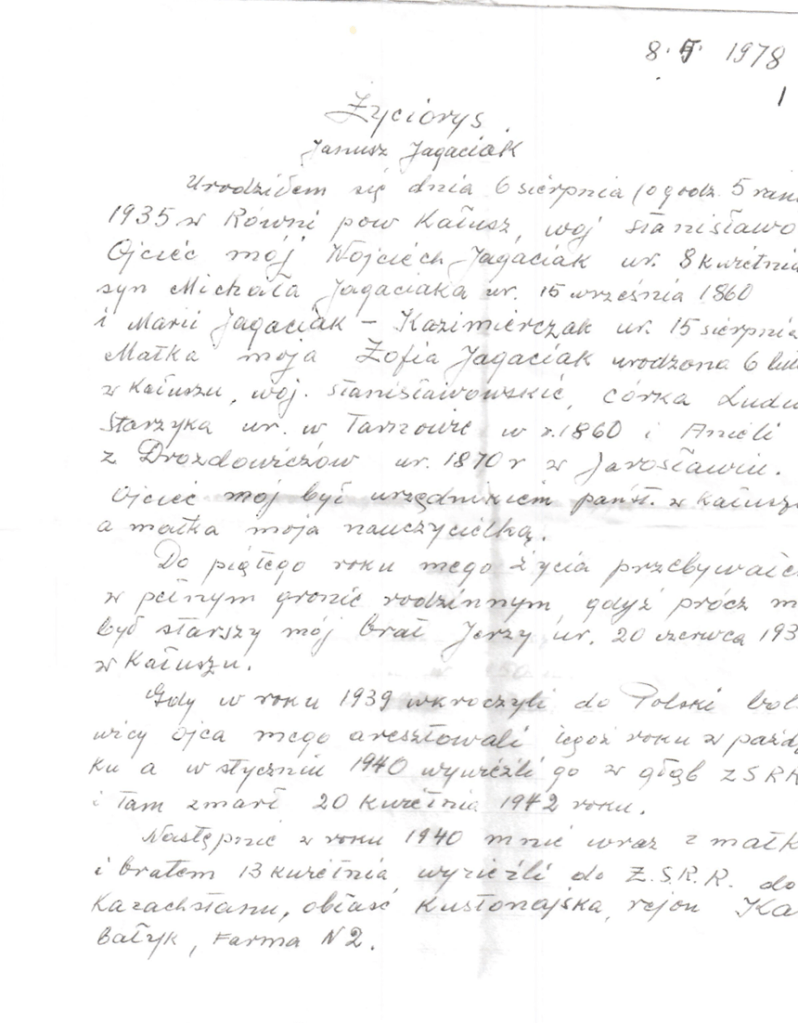 8. V 1978
1
Życiorys
Janusz Jagaciak
Urodziłem się dnia 6 sierpnia (o godz. 5 ran
1935 w Równi pow Kałusz, woj stanisławo
Ojciec mój Wojciech Jagaciak ur. 8 kwietnia
syn Michała Jagaciaka ur. 15 września 1860
i Marii Jagaciak – Kazimierczak ur. 15 sierpnia
Matka moja Zofia Jagaciak urodzona 6 lut
w Kałuszu, woj. stanisławowskie, córka Ludw
Starzyka ur. w Tarnowie w r. 1860 i Anieli
z Drozdowiczów ur. 1870 r w Jarosławiu.
Ojciec mój był urzędnikiem państ. w Kałuszu
a matka moja nauczycielką.
Do piątego roku mego życia przebywałe
w pełnym gronie rodzinnym, gdyż prócz m
był starszy mój brat Jerzy ur. 20 czerwca 193
w Kałuszu.
Gdy w roku 1939 wkroczyli do Polski bol
wicy ojca mego aresztowali tegoż roku w paźdz
ku a w styczniu 1940 wywieźli go w głąb ZSRR
i tam zmarł 20 kwietnia 1942 roku.
Następnie w roku 1940 mnie wraz z matk
i bratem 13 kwietnia wywieźli do Z.S.R.R. do
Kazachstanu, obłaść Kustonajska, rejon Ka
Bałyk, Farma N 2.